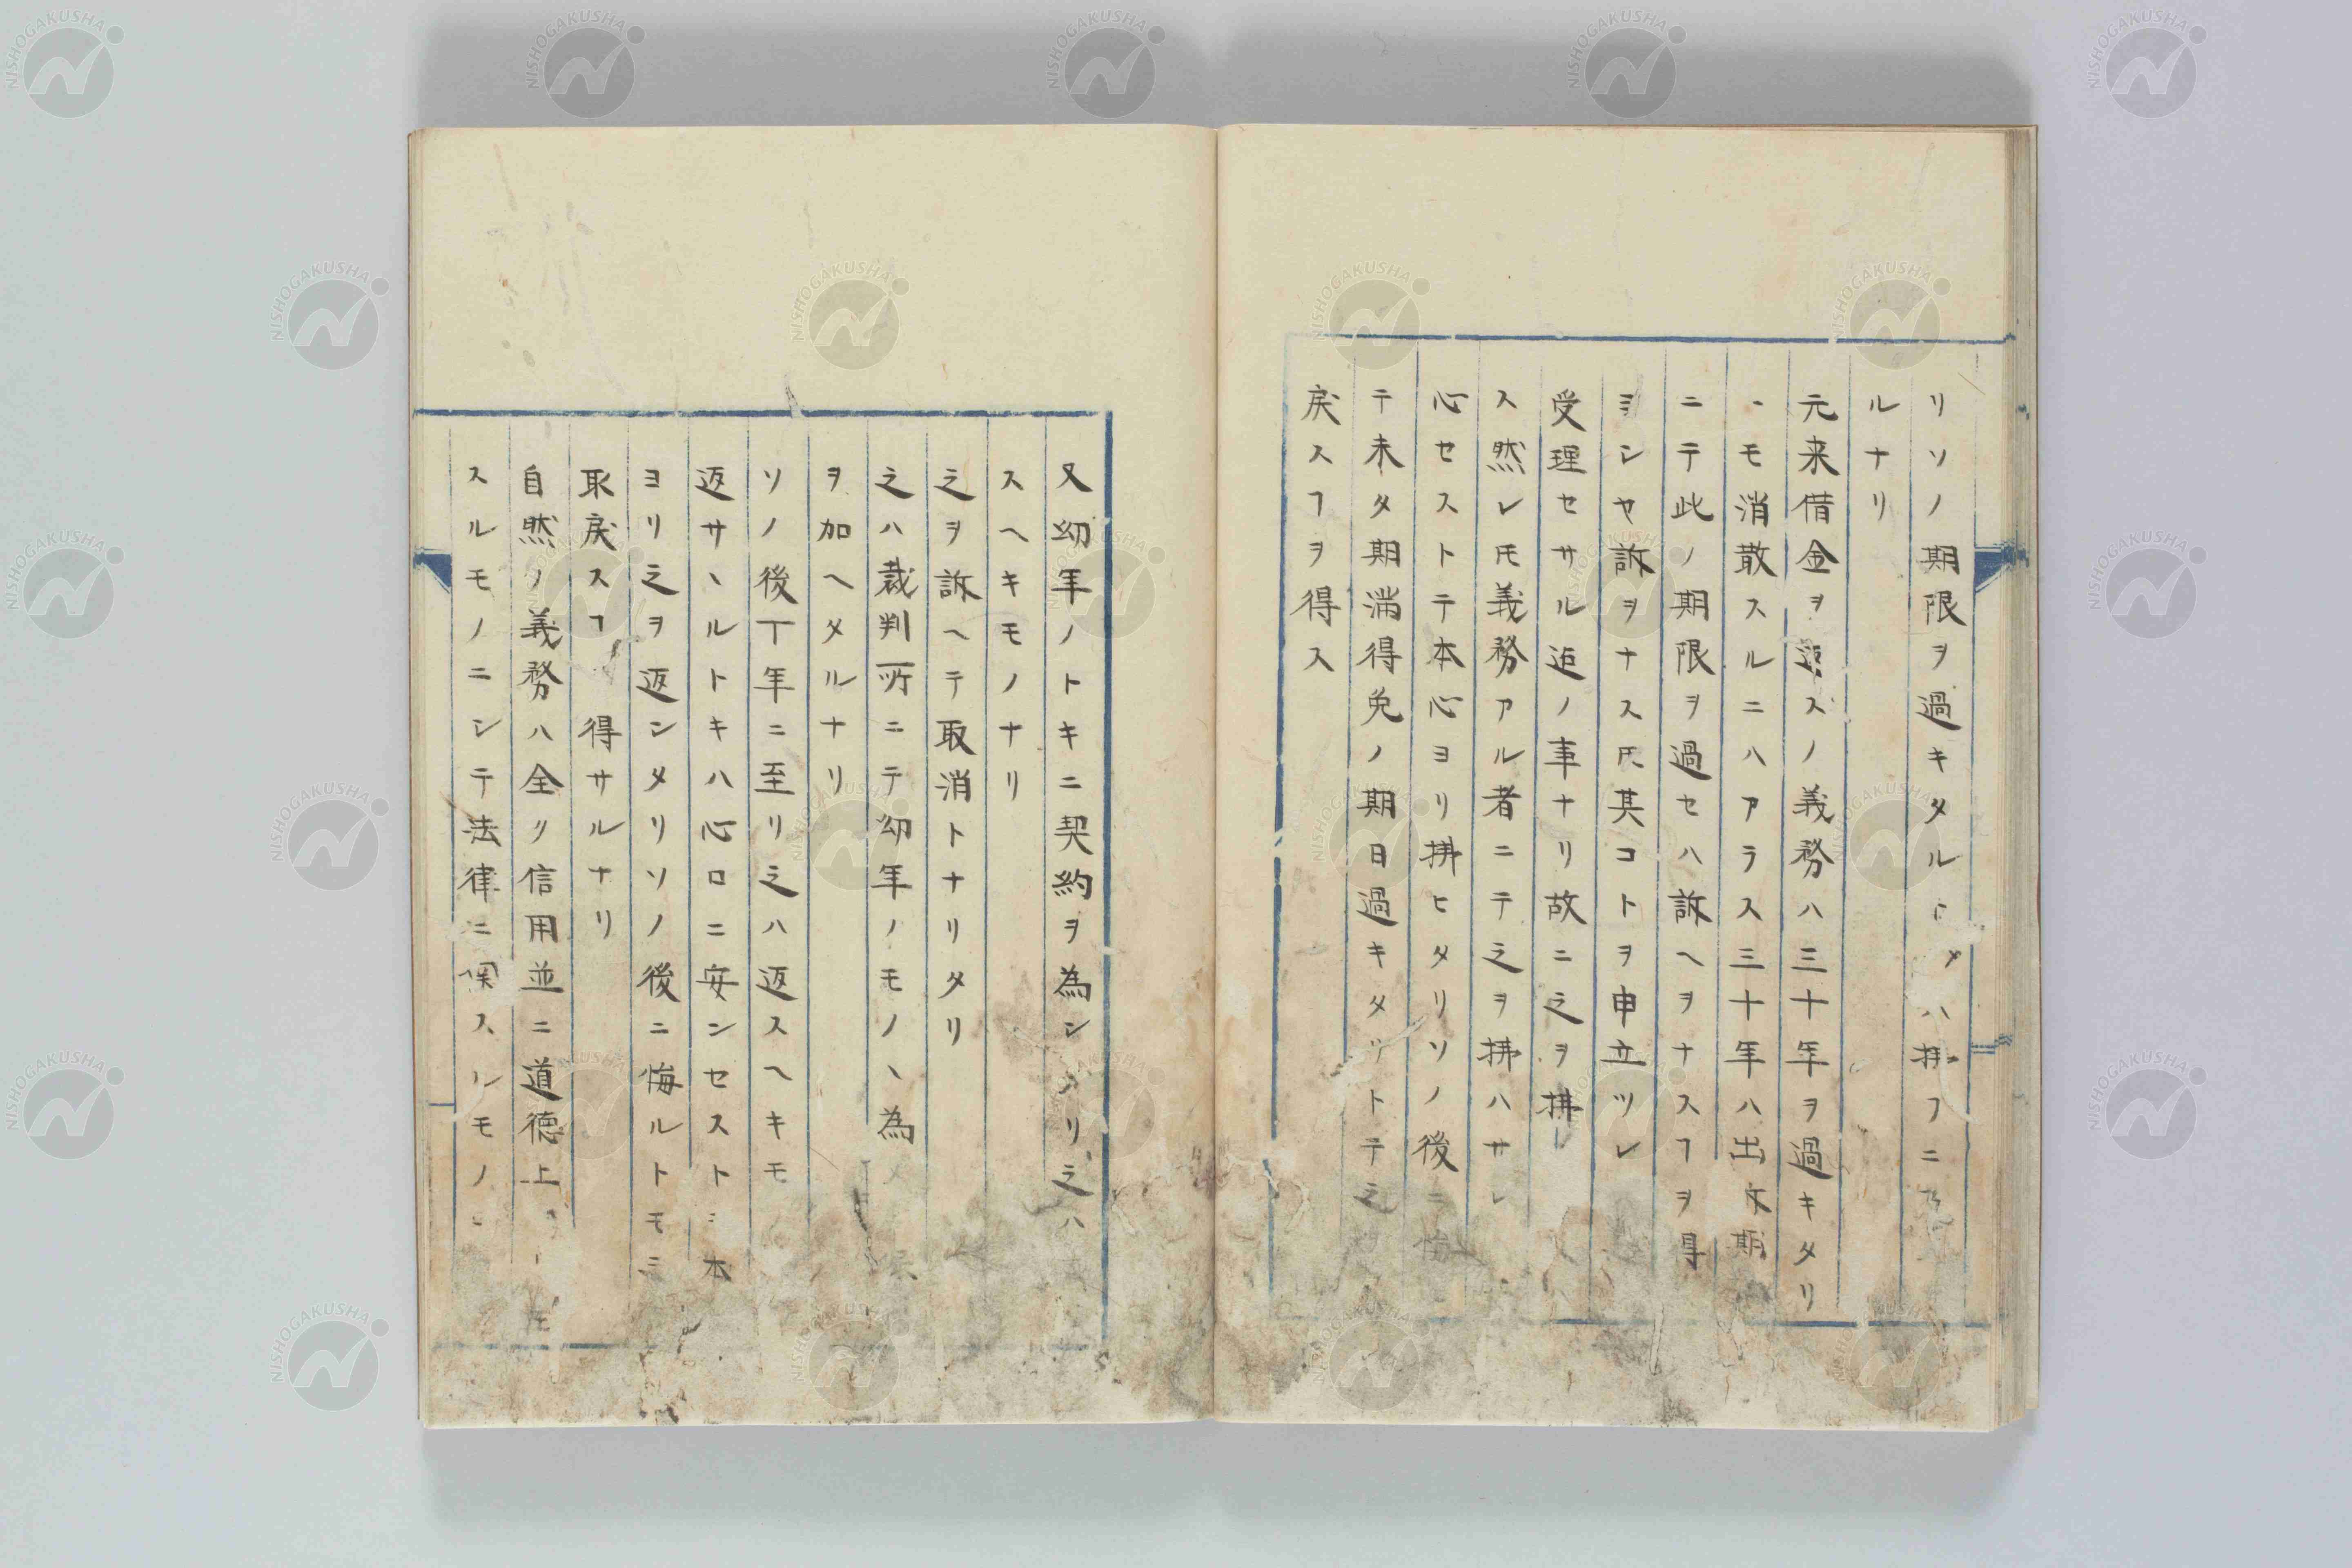 リソノ期限ヲ過キタル ハ拂フニ
ルナリ
元来借金ヲ返スノ義務ハ三十年ヲ過キタリ
トモ消散スルニハアラス三十年ハ出 期
ニテ此ノ期限ヲ過セハ訴ヘヲナスヿヲ得
ヨシヤ訴ヲナスㇳモ其コトヲ申立ツレ
受理セサル迠ノ事ナリ故ニ之ヲ拂
ス然レㇳモ義務アル者ニテ之ヲ拂ハサレ
心セストテ本心ヨリ拂ヒタリソノ後ニ悔
テ未タ期満得免ノ期日過キタリトテ之
戻スヿヲ得ス
又幼年ノトキニ契約ヲ為シタリ之ハ
スヘキモノナリ
之ヲ訴ヘテ取消トナリタリ
之ハ裁判所ニテ幼年ノモノヽ為
ヲ加ヘタルナリ
ソノ後丁年ニ至リ之ハ返スヘキモ
返サヽルトキハ心ロニ安ンセスト 本
ヨリ之ヲ返シタリソノ後ニ悔ルトモ
取戻スヿ 得サルナリ
自然ノ義務ハ全ク信用並ニ道徳上
スルモノニシテ法律ニ関スルモノニ
NISHOGAKUSHA